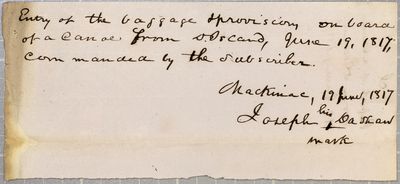 Entry of the baggage & provision on board
of a Canoe from D. Island, June 19, 1817,
commanded by the Subscriber.
Mackinac, 19 June, 1817
Joseph his Cashaw
mark